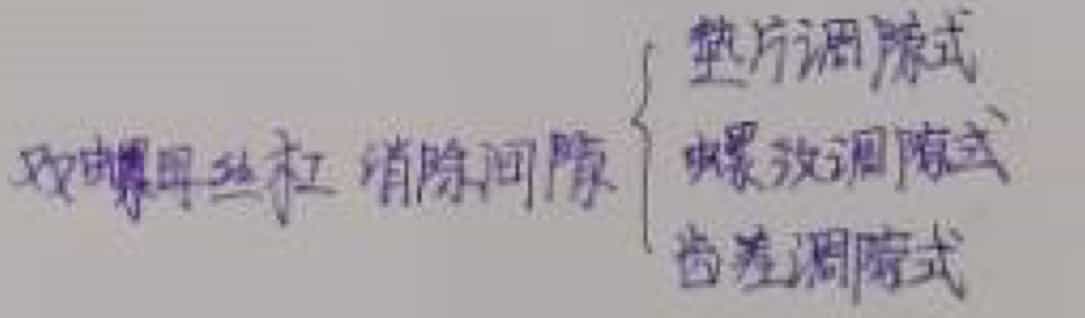 双螺母丝杠 消除间隙
垫片调隙式
螺纹调隙式
齿差调隙式